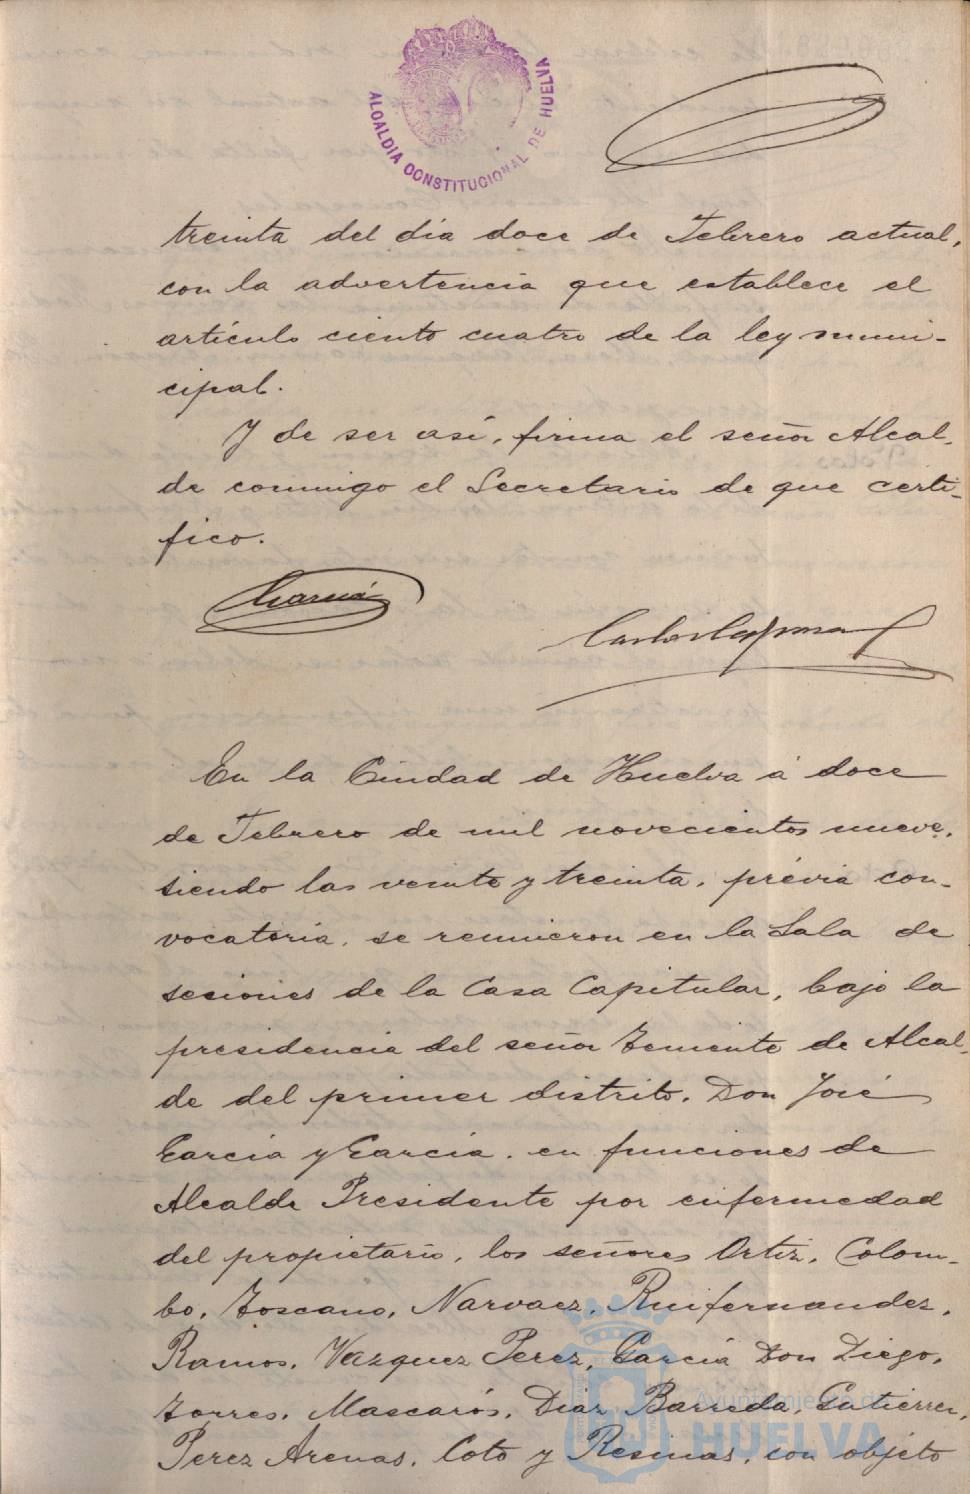 ALCALDIA CONSTITUCIONAL DE HUELVA
treinta del día doce de Febrero actual,
con la advertencia que establece el
artículo ciento cuatro de la ley muni-
cipal.
Y de ser así, firma el señor Alcal-
de conmigo el Secretario de que certi-
fico.
García
En la Ciudad de Huelva á doce
de Febrero de mil novecientos nueve,
siendo las veinte y treinta, prévia con-
vocatoria, se reunieron en la Sala de
sesiones de la Casa Capitular, bajo la
presidencia del señor Teniente de Alcal-
de del primer distrito, Don José
García y García, en funciones de
Alcalde Presidente por enfermedad
del propietario, los señores Ortiz, Colom-
bo, Toscano, Narvaez, Ruifernandez,
Ramos, Vazquez Perez, García Don Diego,
Torres, Mascarós, Diaz Barreda, Gutierrez,
Perez Arenas, Coto y Resinas, con objeto
Ayuntamiento de
HUELVA